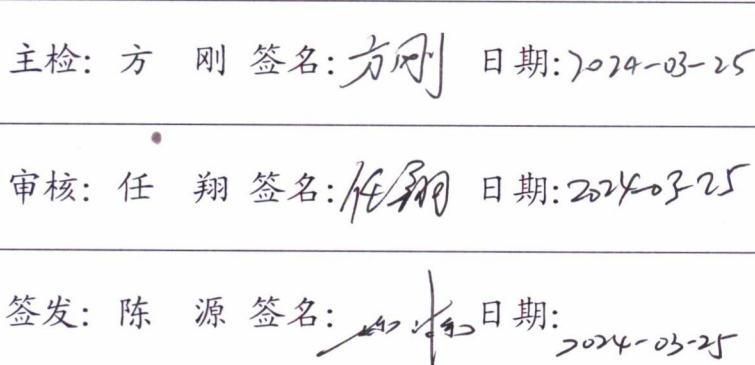 主检: 方 刚 签名: 方刚 日期: 2024-03-25
审核: 任 翔 签名: 任翔 日期: 2024-03-25
签发: 陈 源 签名: 日期: 2024-03-25